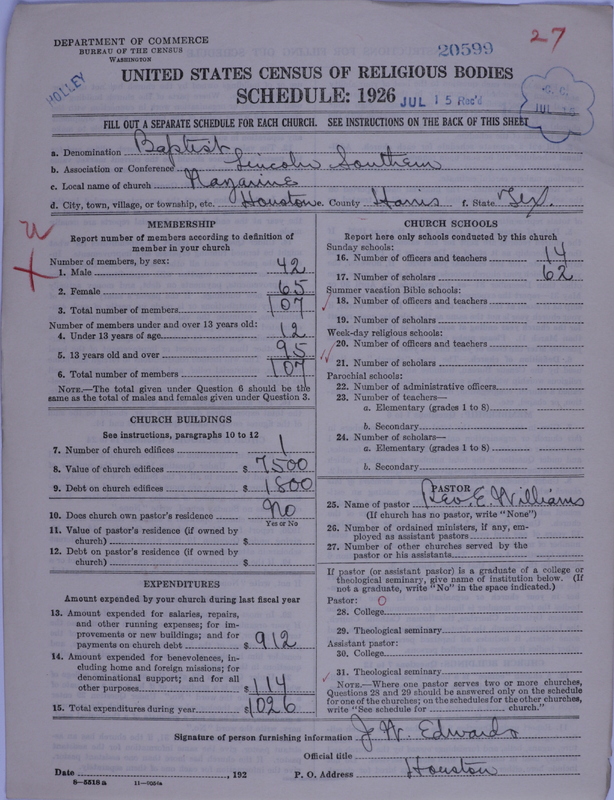 DEPARTMENT OF COMMERCE
BUREAU OF THE CENSUS
WASHINGTON
20599
27
HOLLEY
UNITED STATES CENSUS OF RELIGIOUS BODIES
SCHEDULE: 1926
JUL 15 Rec'd
FILL OUT A SEPARATE SCHEDULE FOR EACH CHURCH. SEE INSTRUCTIONS ON THE BACK OF THIS SHEET
a. Denomination Baptist
b. Association or Conference Lincoln Southern
c. Local name of church Nazarine
d. City, town, village, or township, etc. Houston e. County Harris f. State Tex.
MEMBERSHIP
Report number of members according to definition of
member in your church
Number of members, by sex:
1. Male 42
2. Female 65
3. Total number of members 107
Number of members under and over 13 years old:
4. Under 13 years of age 12
5. 13 years old and over 95
6. Total number of members 107
NOTE.—The total given under Question 6 should be the
same as the total of males and females given under Question 3.
CHURCH BUILDINGS
See instructions, paragraphs 10 to 12
7. Number of church edifices 1
8. Value of church edifices $ 7500
9. Debt on church edifices $ 1800
10. Does church own pastor's residence No
Yes or No
11. Value of pastor's residence (if owned by
church) $
12. Debt on pastor's residence (if owned by
church) $
EXPENDITURES
Amount expended by your church during last fiscal year
13. Amount expended for salaries, repairs,
and other running expenses; for im-
provements or new buildings; and for
payments on church debt $ 912
14. Amount expended for benevolences, in-
cluding home and foreign missions; for
denominational support; and for all
other purposes $ 114
15. Total expenditures during year $ 1026
CHURCH SCHOOLS
Report here only schools conducted by this church
Sunday schools:
16. Number of officers and teachers 14
17. Number of scholars 62
Summer vacation Bible schools:
18. Number of officers and teachers
19. Number of scholars
Week-day religious schools:
20. Number of officers and teachers
21. Number of scholars
Parochial schools:
22. Number of administrative officers
23. Number of teachers—
a. Elementary (grades 1 to 8)
b. Secondary
24. Number of scholars—
a. Elementary (grades 1 to 8)
b. Secondary
PASTOR
25. Name of pastor Rev. E. Williams
(If church has no pastor, write "None")
26. Number of ordained ministers, if any, em-
ployed as assistant pastors
27. Number of other churches served by the
pastor or his assistants
If pastor (or assistant pastor) is a graduate of a college or
theological seminary, give name of institution below. (If
not a graduate, write "No" in the space indicated.)
Pastor: 0
28. College
29. Theological seminary
Assistant pastor:
30. College
31. Theological seminary
NOTE.—Where one pastor serves two or more churches,
Questions 28 and 29 should be answered only on the schedule
for one of the churches; on the schedules for the other churches,
write "See schedule for church."
Signature of person furnishing information J. W. Edwards
Official title
Date , 192 P. O. Address Houston
8-5518a 11-9054a